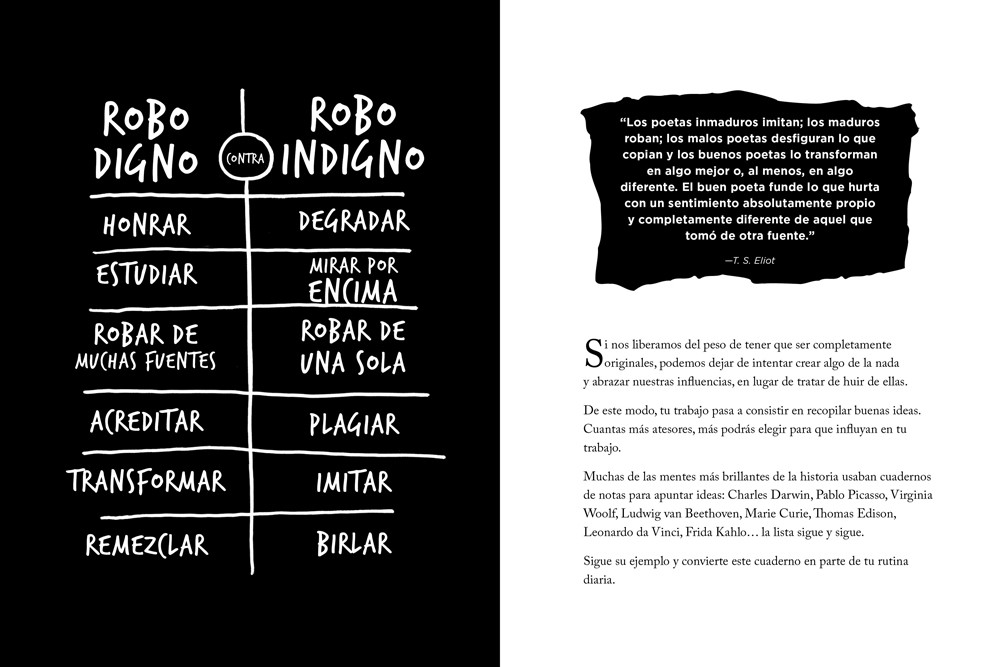 ROBO DIGNO
CONTRA
ROBO INDIGNO
HONRAR
DEGRADAR
ESTUDIAR
MIRAR POR
ENCIMA
ROBAR DE
MUCHAS FUENTES
ROBAR DE
UNA SOLA
ACREDITAR
PLAGIAR
TRANSFORMAR
IMITAR
REMEZCLAR
BIRLAR
“Los poetas inmaduros imitan; los maduros
roban; los malos poetas desfiguran lo que
copian y los buenos poetas lo transforman
en algo mejor o, al menos, en algo
diferente. El buen poeta funde lo que hurta
con un sentimiento absolutamente propio
y completamente diferente de aquel que
tomó de otra fuente.”
—T. S. Eliot
Si nos liberamos del peso de tener que ser completamente
originales, podemos dejar de intentar crear algo de la nada
y abrazar nuestras influencias, en lugar de tratar de huir de ellas.
De este modo, tu trabajo pasa a consistir en recopilar buenas ideas.
Cuantas más atesores, más podrás elegir para que influyan en tu
trabajo.
Muchas de las mentes más brillantes de la historia usaban cuadernos
de notas para apuntar ideas: Charles Darwin, Pablo Picasso, Virginia
Woolf, Ludwig van Beethoven, Marie Curie, Thomas Edison,
Leonardo da Vinci, Frida Kahlo… la lista sigue y sigue.
Sigue su ejemplo y convierte este cuaderno en parte de tu rutina
diaria.